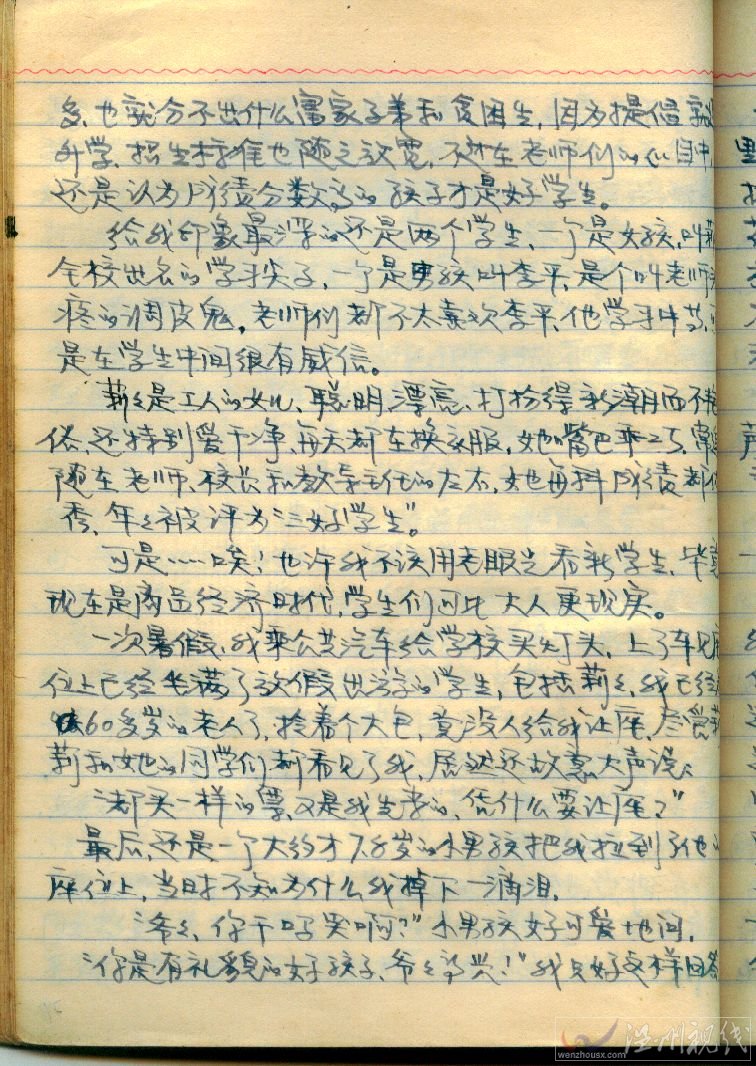 多,也就分不出什么富家子弟和贫困生,因为提倡
升学,招生标准也随之放宽,不过在老师们的心目中
还是认为成绩分数高的孩子才是好学生。
给我印象最深的还是两个学生,一个是女孩,叫莉
全校出名的学习尖子,一个是男孩叫李平,是个叫老师头
疼的调皮鬼,老师们都不太喜欢李平,他学习中等,
是在学生中间很有威信。
莉々是工人的女儿、聪明、漂亮、打扮得新潮而不
俗,还特别爱干净,每天都在换衣服,她嘴巴乖巧,常
随在老师、校长和教导主任的左右,她每科成绩都优
秀,年々被评为“三好学生”。
可是……唉!也许我不该用老眼光看新学生,毕竟
现在是商品经济时代,学生们可比大人更现实。
一次暑假,我乘公共汽车给学校买灯头,上了车见
位上已经坐满了放假出游的学生,包括莉々,我已经
60多岁的老人了,拎着个大包,竟没人给我让座,尽管
莉和她的同学们都看见了我,居然还故意大声说:
“都买一样的票,又是我先来的,凭什么要让座?”
最后,还是一个大约才7.8岁的小男孩把我拉到了他
座位上,当时不知为什么我掉下一滴泪,
“爷々、你干吗哭啊?”小男孩好可爱地问,
“你是有礼貌的好孩子,爷々高兴!”我只好这样回答
温州视线
wenzhousx.com